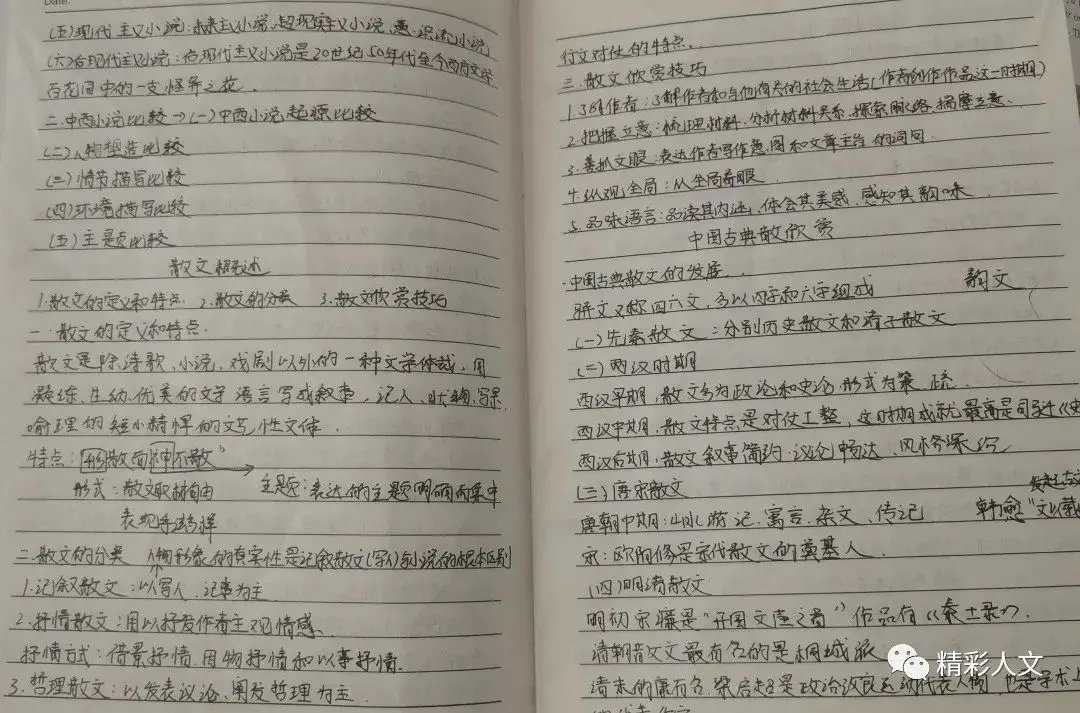 Date:
(五)现代主义小说:未来主义小说、超现实主义小说、意识流小说
(六)后现代主义小说:后现代主义小说是20世纪50年代至今西方文学
百花园中的一支怪异之花.
二.中西小说比较→(一)中西小说起源比较
(二)人物塑造比较
(三)情节描写比较
(四)环境描写比较
(五)主题比较
散文概述
1.散文的定义和特点. 2.散文的分类 3.散文欣赏技巧
一.散文的定义和特点.
散文是除诗歌、小说、戏剧以外的一种文学体裁,用
凝练、生动、优美的文学语言写成叙事、记人、状物、写景、
喻理的短小精悍的文艺性文体.
特点:"形散而神不散"
形式:散文取材自由 主题:表达的主题明确而集中
表现手法多样
二.散文的分类 人物形象的真实性是记叙散文(写人)与小说的根本区别
1.记叙散文:以写人、记事为主
2.抒情散文:用以抒发作者主观情感.
抒情方式:借景抒情、因物抒情和以事抒情.
3.哲理散文:以发表议论、阐发哲理为主.
行文对仗的特点.
三.散文欣赏技巧
1.了解作者:了解作者和与他有关的社会生活(作者创作作品这一时期)
2.把握立意:梳理材料,分析材料关系,探索脉络,揣摩立意.
3.善抓文眼:表达作者写作意图和文章主旨的词句.
4.纵观全局:从全局着眼.
5.品味语言:品读其内涵、体会其美感、感知其韵味
中国古典散欣赏
·中国古典散文的发展.
骈文又称四六文,多以四字和六字组成 韵文
(一)先秦散文:分别历史散文和诸子散文
(二)两汉时期
西汉早期,散文多为政论和史论,形式为策、疏.
西汉中期,散文特点是对仗工整,这时期成就最高是司马迁《史
西汉后期,散文叙事简约、议论畅达、风格深沉
(三)唐宋散文
唐朝中期:山水游记、寓言、杂文、传记 韩愈"文以载
宋:欧阳修是宋代散文的奠基人.
(四)明清散文
明初宋濂是"开国文臣之首" 作品有《秦士录》.
清朝散文最有名的是桐城派
清末的康有为、梁启超是政治改良运动代表人物,也是学术上
精彩人文